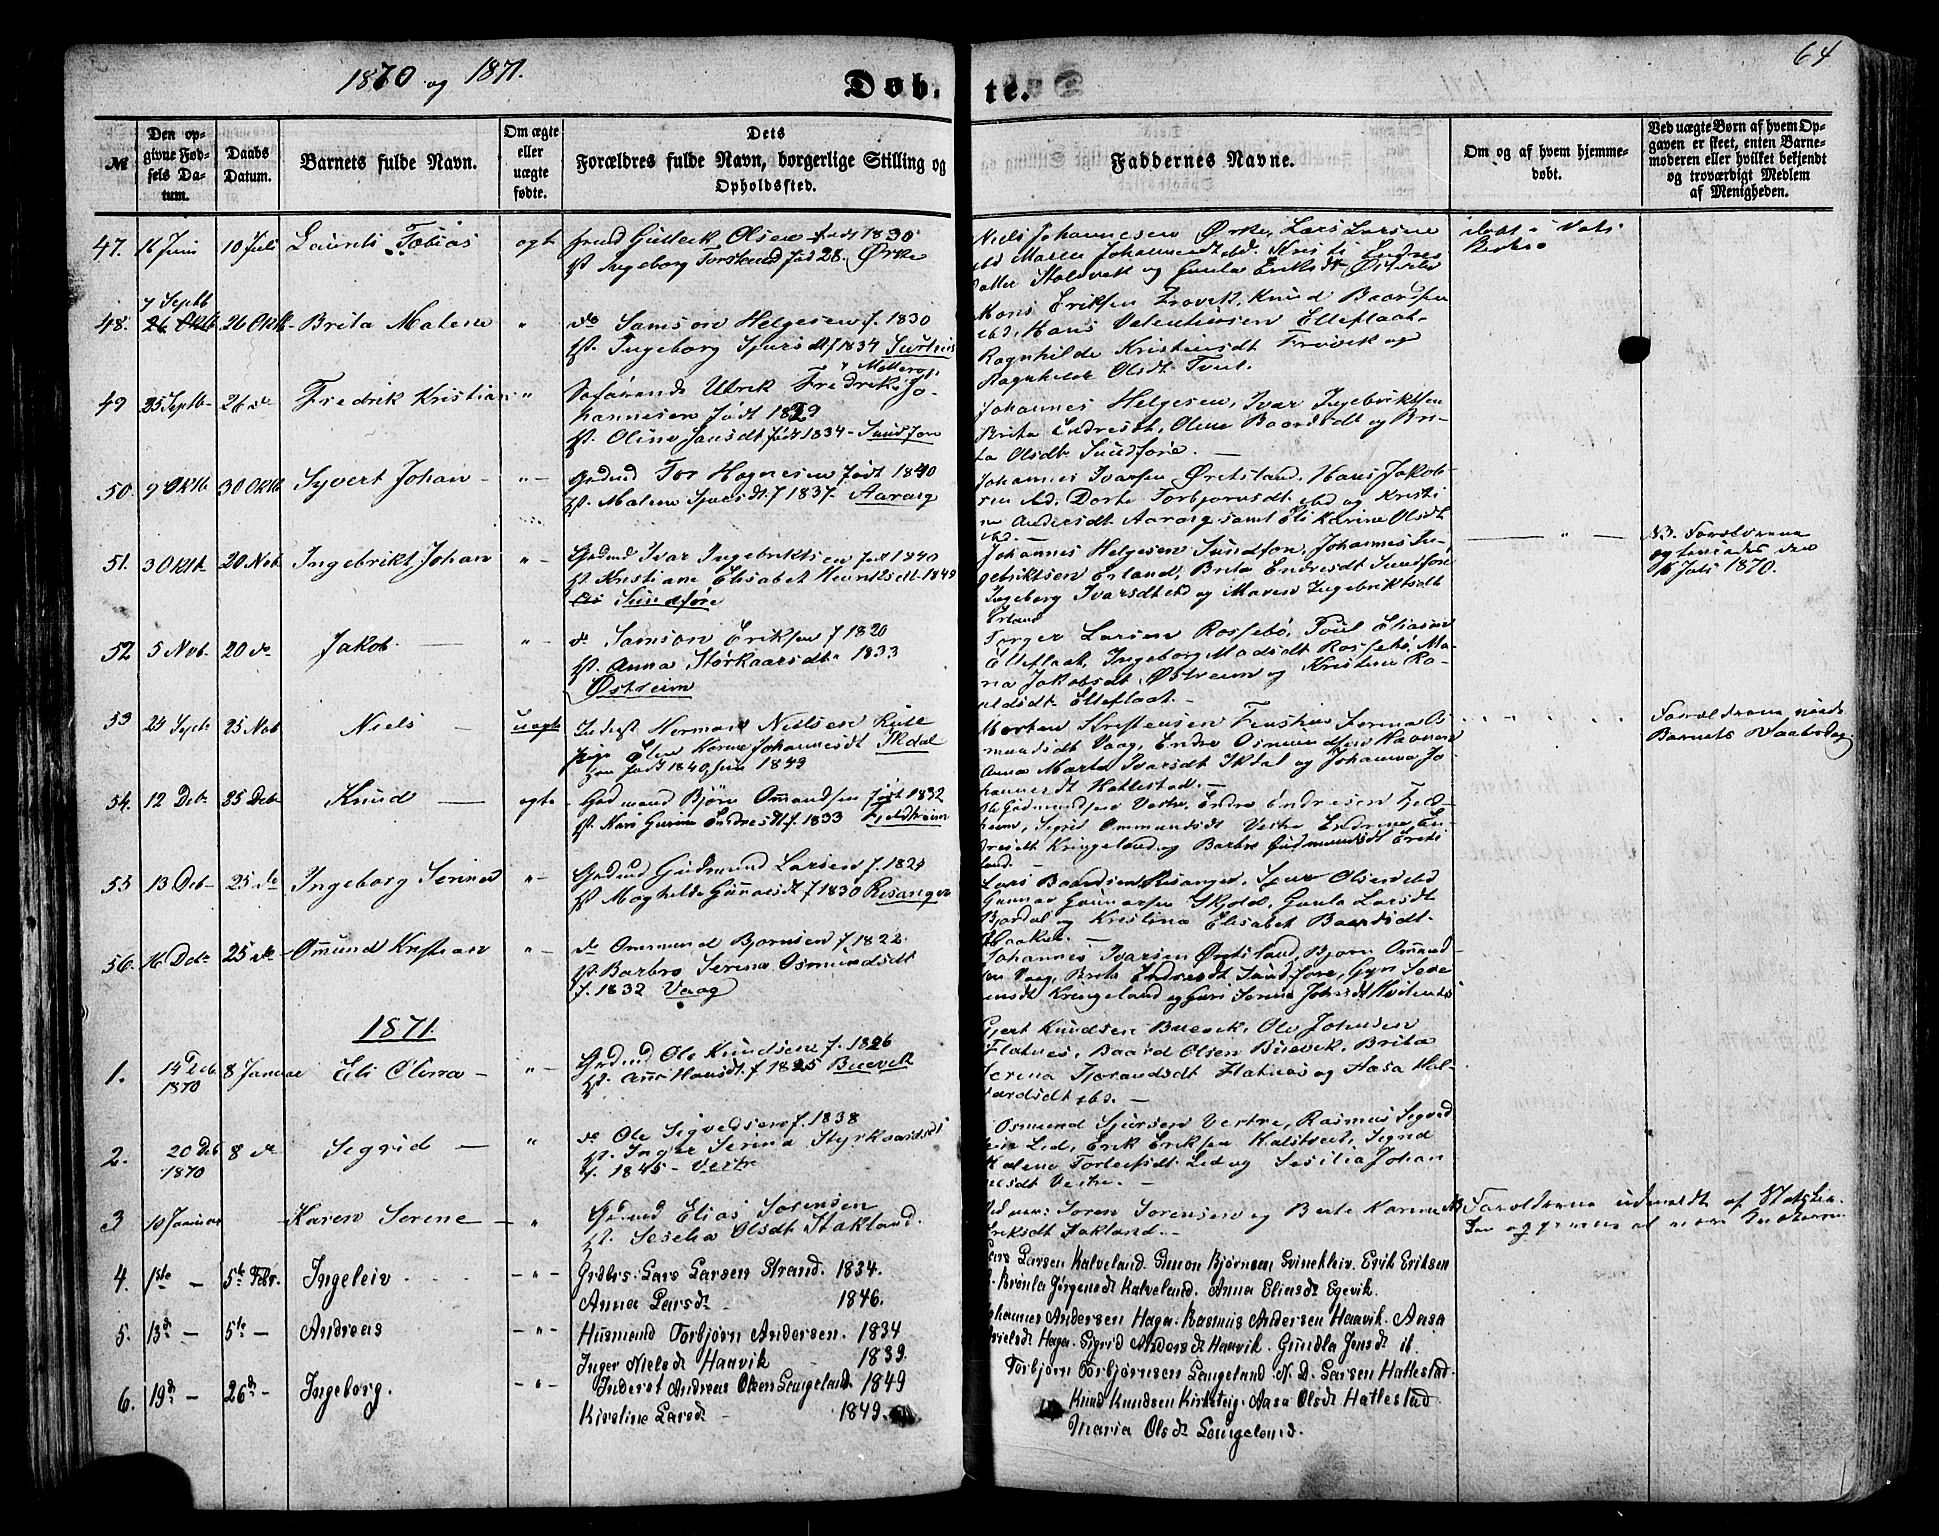 64
1870 og 1871.
Døb. te.
№
Den op-
givne Fød-
sels Da-
tum.
Daabs
Datum.
Barnets fulde Navn.
Om ægte
eller
uægte
fødte.
Dets
Forældres fulde Navn, borgerlige Stilling og
Opholdssted.
Faddernes Navne.
Om og af hvem hjemme-
døbt.
Ved uægte Børn af hvem Op-
gaven er skeet, enten Barne-
moderen eller hvilket bekjendt
og troværdigt Medlem
af Menigheden.
47. 16 Juni 10 Juli Laurits Tobias ægte Gulleck Olsen født 1830
Ingeborg Torstensd. fød 28. Ørke
Niels Johannesen Ørke, Lars Larsen
ibd Johannesdt ibd.
Stolsvik og Gunla Eriksdt
døbt i Vats
Kirke
7 Septb
48. 26 Oktb 26 Oktb Brita Malene " do Samson Helgesen f. 1830
Hst. Ingeborg Sjursdt f 1834
Mons Eriksen Trovik, Knud Baardsen
ibd, Hans Valentinsen Elleflaat
Ragnhilde Kristensdt Trovik og
Ragnhilde Olsdt Tveit.
49 25 Septb 26 do Fredrik Kristian " Søfarende Ulrik Fredrik Jo-
hannesen født 1829
Hst. Oline Jansdt født 1834 - Sundføre
Johannes Helgesen, Ivar Ingebriktsen
Brita Endresdt, Oline Baardsdt og Bri-
ta Olsdt Sundføre. —
50. 9 Oktb 30 Oktb Syvert Johan - " - Gaardmd Tor Hognesen født 1840
Hst. Malene Sjursdt f 1837. Aarvig
Johannes Ivarsen Øvretsland, Hans Jakob-
sen ibd. Dorte Torbjørnsdt ibd og Kristi
ne Andersdt Aarvig samt Eli Karine Olsdt
ibd. —
51. 3 Oktb. 20 Nob Ingebrikt Johan " - Gaardmd Ivar Ingebriktsen født 1840
Hst Kristiane Elisabet Henriksdt 1849
Sundføre
Johannes Helgesen Sundføre, Johannes In-
gebriktsen Erland, Brita Endresdt Sundføre
Ingeborg Ivarsdt ibd og Maren Ingebriktsdt
Erland
— " —
NB. Forældrene
den
Juli 1870.
52 5 Nob. 20 do Jakob — " - do Samson Eriksen f 1820
Hst. Anna Størkaarsdt 1833
Østreim
Torger Larsen Rossebø, Poul Eliasen
Elleflaat, Ingeborg Madsdt Rossebø, Ma-
ria Jakobsdt Østreim og Kristine Ro-
aldsdt Elleflaat. —
53 24 Septb 25 Nob Niels — uægte Inderst Herman Nielsen
pige Elen Karine Johannesdt Skdal
han født 1840, hun 1849
Morten Kristensen
mundsdt Vaag, Endre Osmundsen
Anna Marta Ivarsdt Skdal og Johanna Jo-
hannesdt Hattestad. —
Forældrene
Barnets Daabsdag
54. 12 Deb 25 Deb Knud — ægte Gaardmand Bjørn Ommundsen født 1832
Hst. Kari Gurine Endresdt f. 1833 Fjeldheim
Ole Gudmundsen Vestre, Endre Endresen Fjeld-
heim, Sigrid Ommundsdt Vestre Endrine En-
dresdt Kringeland og Barbro Gudmundsdt
land.
55 13 Deb 25 do Ingeborg Serine " - Gaardmd Gudmund Larsen f. 1824
Hst Maghelde Gunnarsdt f 1830 Risanger
Lars Baardsen Risanger, Sjur Olsen ibd
Gunnar Gunnarsen Skjold, Gunla Larsdt
Bjordal og Kristina Elisabet Baardsdt
56. 16 Deb. 25 do Ommund Kristian " - do Ommund Bjørnsen f. 1822.
Hst. Barbro Serine Osmundsdt
f. 1832 Vaag
Johannes Ivarsen Øvretsland, Bjørn Ommund-
sen Vaag, Brita Endresdt Sundføre, Gyri
Kringeland og Guri Serine
1871.
1. 14 Deb 1870 8 Januar Eli Olina — " - Gaardmd Ole Knudsen f. 1826
Hst. Anna Hansdt f 1825 Buevik
Gjert Knudsen Buevik, Ole Johnsen
Flatnes, Baard Olsen Buevik, Brita
Serina Tjerandsdt Flatnes og Aasa Hal-
vardsdt ibd. —
2. 20 Deb 1870 8 do Sigrid — " do Ole Sigvedsen f. 1838
Hst. Inger Serina Styrkaardsdt
f. 1845 - Vestre
Osmund Sjursen Vestre, Rasmus Sigved
sen Lid, Erik Eriksen Halstveit, Signa
Malena Torleifsdt Lid og Sesilia Johan
nesdt Vestre. —
3 10 Januar Karen Serene — " Gaardmd Elias Sørensen
Hst. Seselia Olsdt Stakland.
Søren Sørensen og Berte Karine
Eriksdt Stakland. —
NB Forældrene udmeldt af Statskir-
ken
4. 1ste — 5te Febr. Ingeleiv — " — Grdbr. Lars Larsen Strand. 1834.
Anna Larsdt — 1846.
Lars Larsen Kalveland. Simon Bjørnsen Svinekleiv. Erik Eriksen
Brønla Jørgensdt Kalveland. Anna Eliasdt Egevik.
5. 13d — 5te — Andreas — " — Husmand Torbjørn Andersen. 1834
Inger Nielsdt Haavik 1839.
Johannes Andersen Haga. Rasmus Andersen Haavik. Aasa
Nielsdt Haga. Sigrid Andersdt Haavik. Gundla Jensdt ib.
6. 19d — 26d — Ingeborg. — " — Inderst Andreas Olsen Langeland. 1849
Kiroline Larsdt — 1849.
Torbjørn Torbjørnsen Langeland. N. D. Larsen Hattestad.
Knud Knudsen Kirketeig. Aasa Olsdt Hattestad.
Maria Olsdt Langeland.